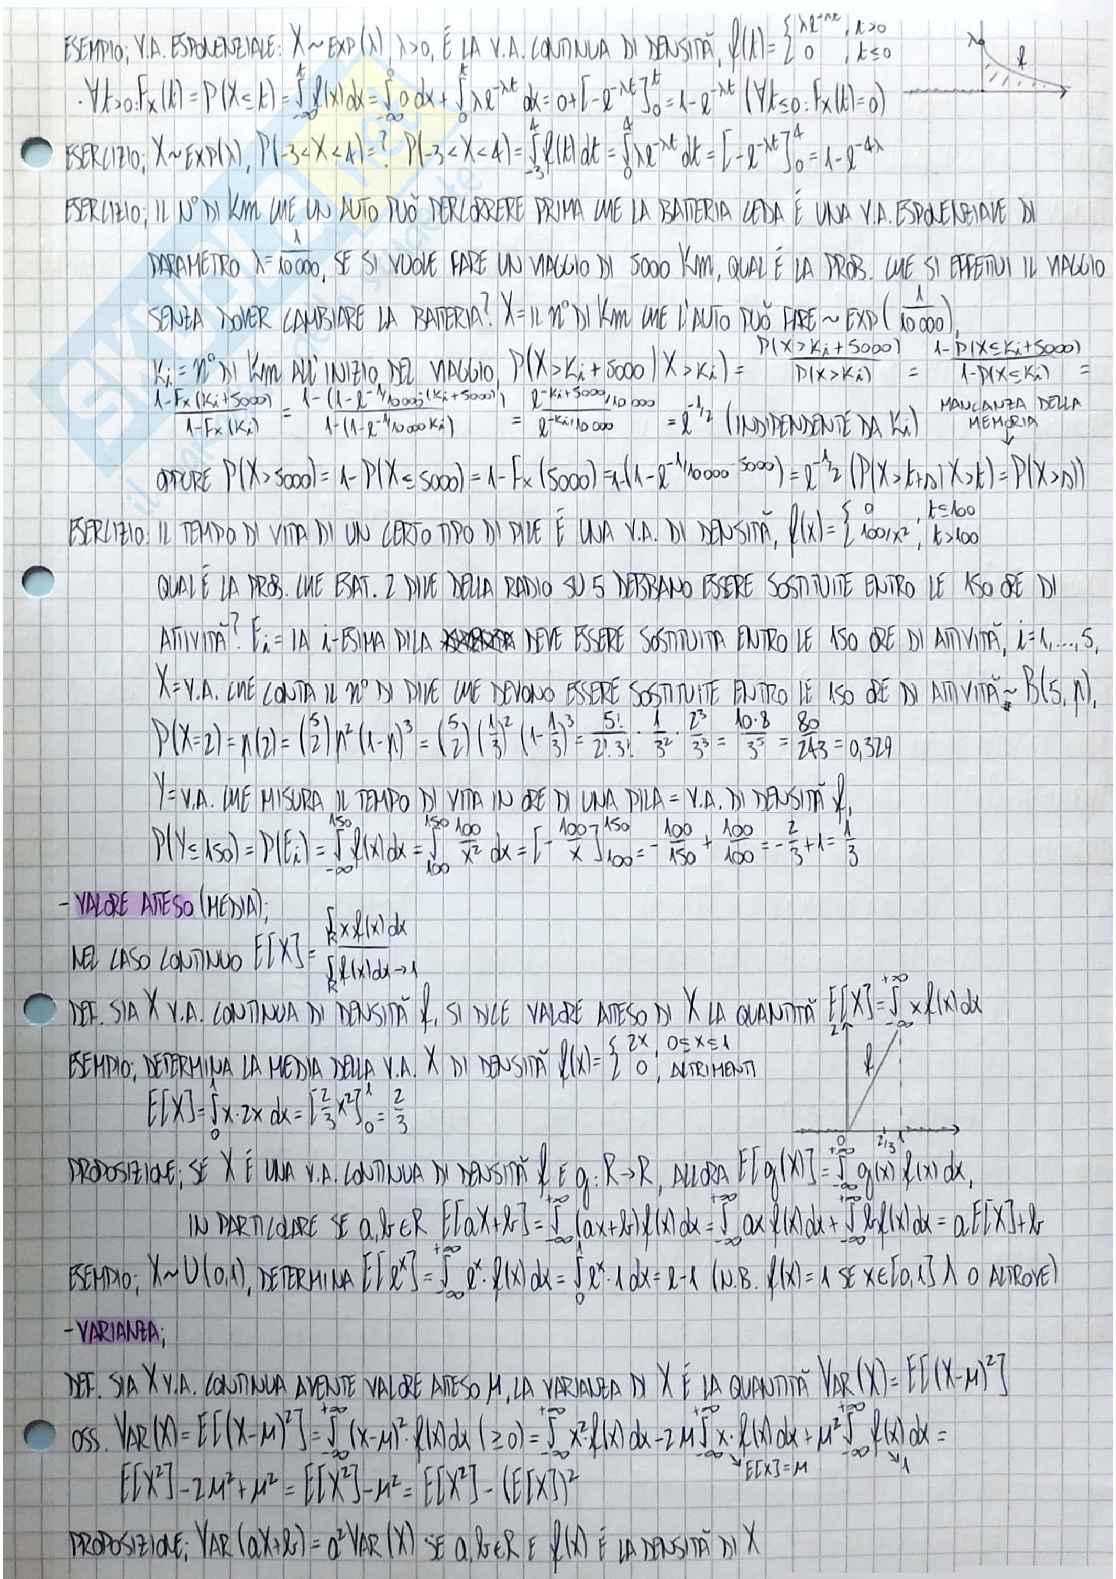 ESEMPIO; V.A. ESPONENZIALE: X ~ EXP(λ), λ>0, È LA V.A. CONTINUA DI DENSITÀ, f(t) = { λe^{-λt}, t>0 ; 0, t≤0
· ∀t>0: F_X(t) = P(X≤t) = ∫_{-∞}^{t} f(x)dx = ∫_{-∞}^{0} 0 dx + ∫_{0}^{t} λe^{-λt} dx = 0+[-e^{-λt}]_0^t = 1-e^{-λt} (∀t≤0: F_X(t)=0)
ESERCIZIO; X ~ EXP(λ), P(-3<X<4)=? P(-3<X<4) = ∫_{-3}^{4} f(t)dt = ∫_{0}^{4} λe^{-λt} dt = [-e^{-λt}]_0^4 = 1-e^{-4λ}
ESERCIZIO; IL N° DI KM CHE UN AUTO PUÒ PERCORRERE PRIMA CHE LA BATTERIA CEDA È UNA V.A. ESPONENZIALE DI
PARAMETRO λ=1/10000, SE SI VUOLE FARE UN VIAGGIO DI 5000 KM, QUAL È LA PROB. CHE SI EFFETTUI IL VIAGGIO
SENZA DOVER CAMBIARE LA BATTERIA? X = IL N° DI KM CHE L'AUTO PUÒ FARE ~ EXP(1/10000),
K_i = N° DI KM ALL'INIZIO DEL VIAGGIO, P(X>K_i+5000 | X>K_i) = P(X>K_i+5000)/P(X>K_i) = 1-P(X≤K_i+5000)/1-P(X≤K_i) =
1-F_X(K_i+5000)/1-F_X(K_i) = 1-(1-e^{-1/10000·(K_i+5000)})/1-(1-e^{-1/10000 K_i}) = e^{-K_i+5000/10000}/e^{-K_i/10000} = e^{-1/2} (INDIPENDENTE DA K_i) MANCANZA DELLA MEMORIA
OPPURE P(X>5000) = 1-P(X≤5000) = 1-F_X(5000) = 1-(1-e^{-1/10000·5000}) = e^{-1/2} (P(X>t+s|X>t) = P(X>s))
ESERCIZIO: IL TEMPO DI VITA DI UN CERTO TIPO DI PILE È UNA V.A. DI DENSITÀ, f(x) = { 0, t≤100 ; 100/x², t>100
QUAL È LA PROB. CHE ESAT. 2 PILE DELLA RADIO SU 5 DEBBANO ESSERE SOSTITUITE ENTRO LE 150 ORE DI
ATTIVITÀ? E_i = LA i-ESIMA PILA DEVE ESSERE SOSTITUITA ENTRO LE 150 ORE DI ATTIVITÀ, i=1,...,5,
X = V.A. CHE CONTA IL N° DI PILE CHE DEVONO ESSERE SOSTITUITE ENTRO LE 150 ORE DI ATTIVITÀ ~ B(5, p),
P(X=2) = p(2) = (5 2) p² (1-p)³ = (5 2) (1/3)² (1-1/3)³ = 5!/2!·3! · 1/3² · 2³/3³ = 10·8/3⁵ = 80/243 = 0,329
Y = V.A. CHE MISURA IL TEMPO DI VITA IN ORE DI UNA PILA = V.A. DI DENSITÀ f,
P(Y≤150) = P(E_i) = ∫_{-∞}^{150} f(x)dx = ∫_{100}^{150} 100/x² dx = [-100/x]_{100}^{150} = -100/150 + 100/100 = -2/3+1 = 1/3
- VALORE ATTESO (MEDIA);
NEL CASO CONTINUO E[X] = ∫_R x f(x)dx / ∫_R f(x)dx → 1
DEF. SIA X V.A. CONTINUA DI DENSITÀ f, SI DICE VALORE ATTESO DI X LA QUANTITÀ E[X] = ∫_{-∞}^{+∞} x f(x)dx
ESEMPIO; DETERMINA LA MEDIA DELLA V.A. X DI DENSITÀ f(x) = { 2x, 0≤x≤1 ; 0, ALTRIMENTI
E[X] = ∫_0^1 x·2x dx = [2/3 x²]_0^1 = 2/3
PROPOSIZIONE; SE X È UNA V.A. CONTINUA DI DENSITÀ f E g: R→R, ALLORA E[g(X)] = ∫_{-∞}^{+∞} g(x) f(x) dx,
IN PARTICOLARE SE a,b∈R E[aX+b] = ∫_{-∞}^{+∞} (ax+b)f(x)dx = ∫_{-∞}^{+∞} ax f(x)dx + ∫_{-∞}^{+∞} b f(x)dx = aE[X]+b
ESEMPIO; X ~ U(0,1), DETERMINA E[e^x] = ∫_{-∞}^{+∞} e^x · f(x)dx = ∫_0^1 e^x · 1 dx = e-1 (N.B. f(x) = 1 SE x∈[0,1] ∧ 0 ALTROVE)
- VARIANZA;
DEF. SIA X V.A. CONTINUA AVENTE VALORE ATTESO μ, LA VARIANZA DI X È LA QUANTITÀ VAR(X) = E[(X-μ)²]
OSS. VAR(X) = E[(X-μ)²] = ∫_{-∞}^{+∞} (x-μ)² · f(x)dx (≥0) = ∫_{-∞}^{+∞} x² f(x)dx - 2μ ∫_{-∞}^{+∞} x · f(x)dx + μ² ∫_{-∞}^{+∞} f(x)dx =
E[X]=μ 1
E[X²] - 2μ² + μ² = E[X²] - μ² = E[X²] - (E[X])²
PROPOSIZIONE; VAR(aX+b) = a² VAR(X) SE a,b∈R E f(x) È LA DENSITÀ DI X